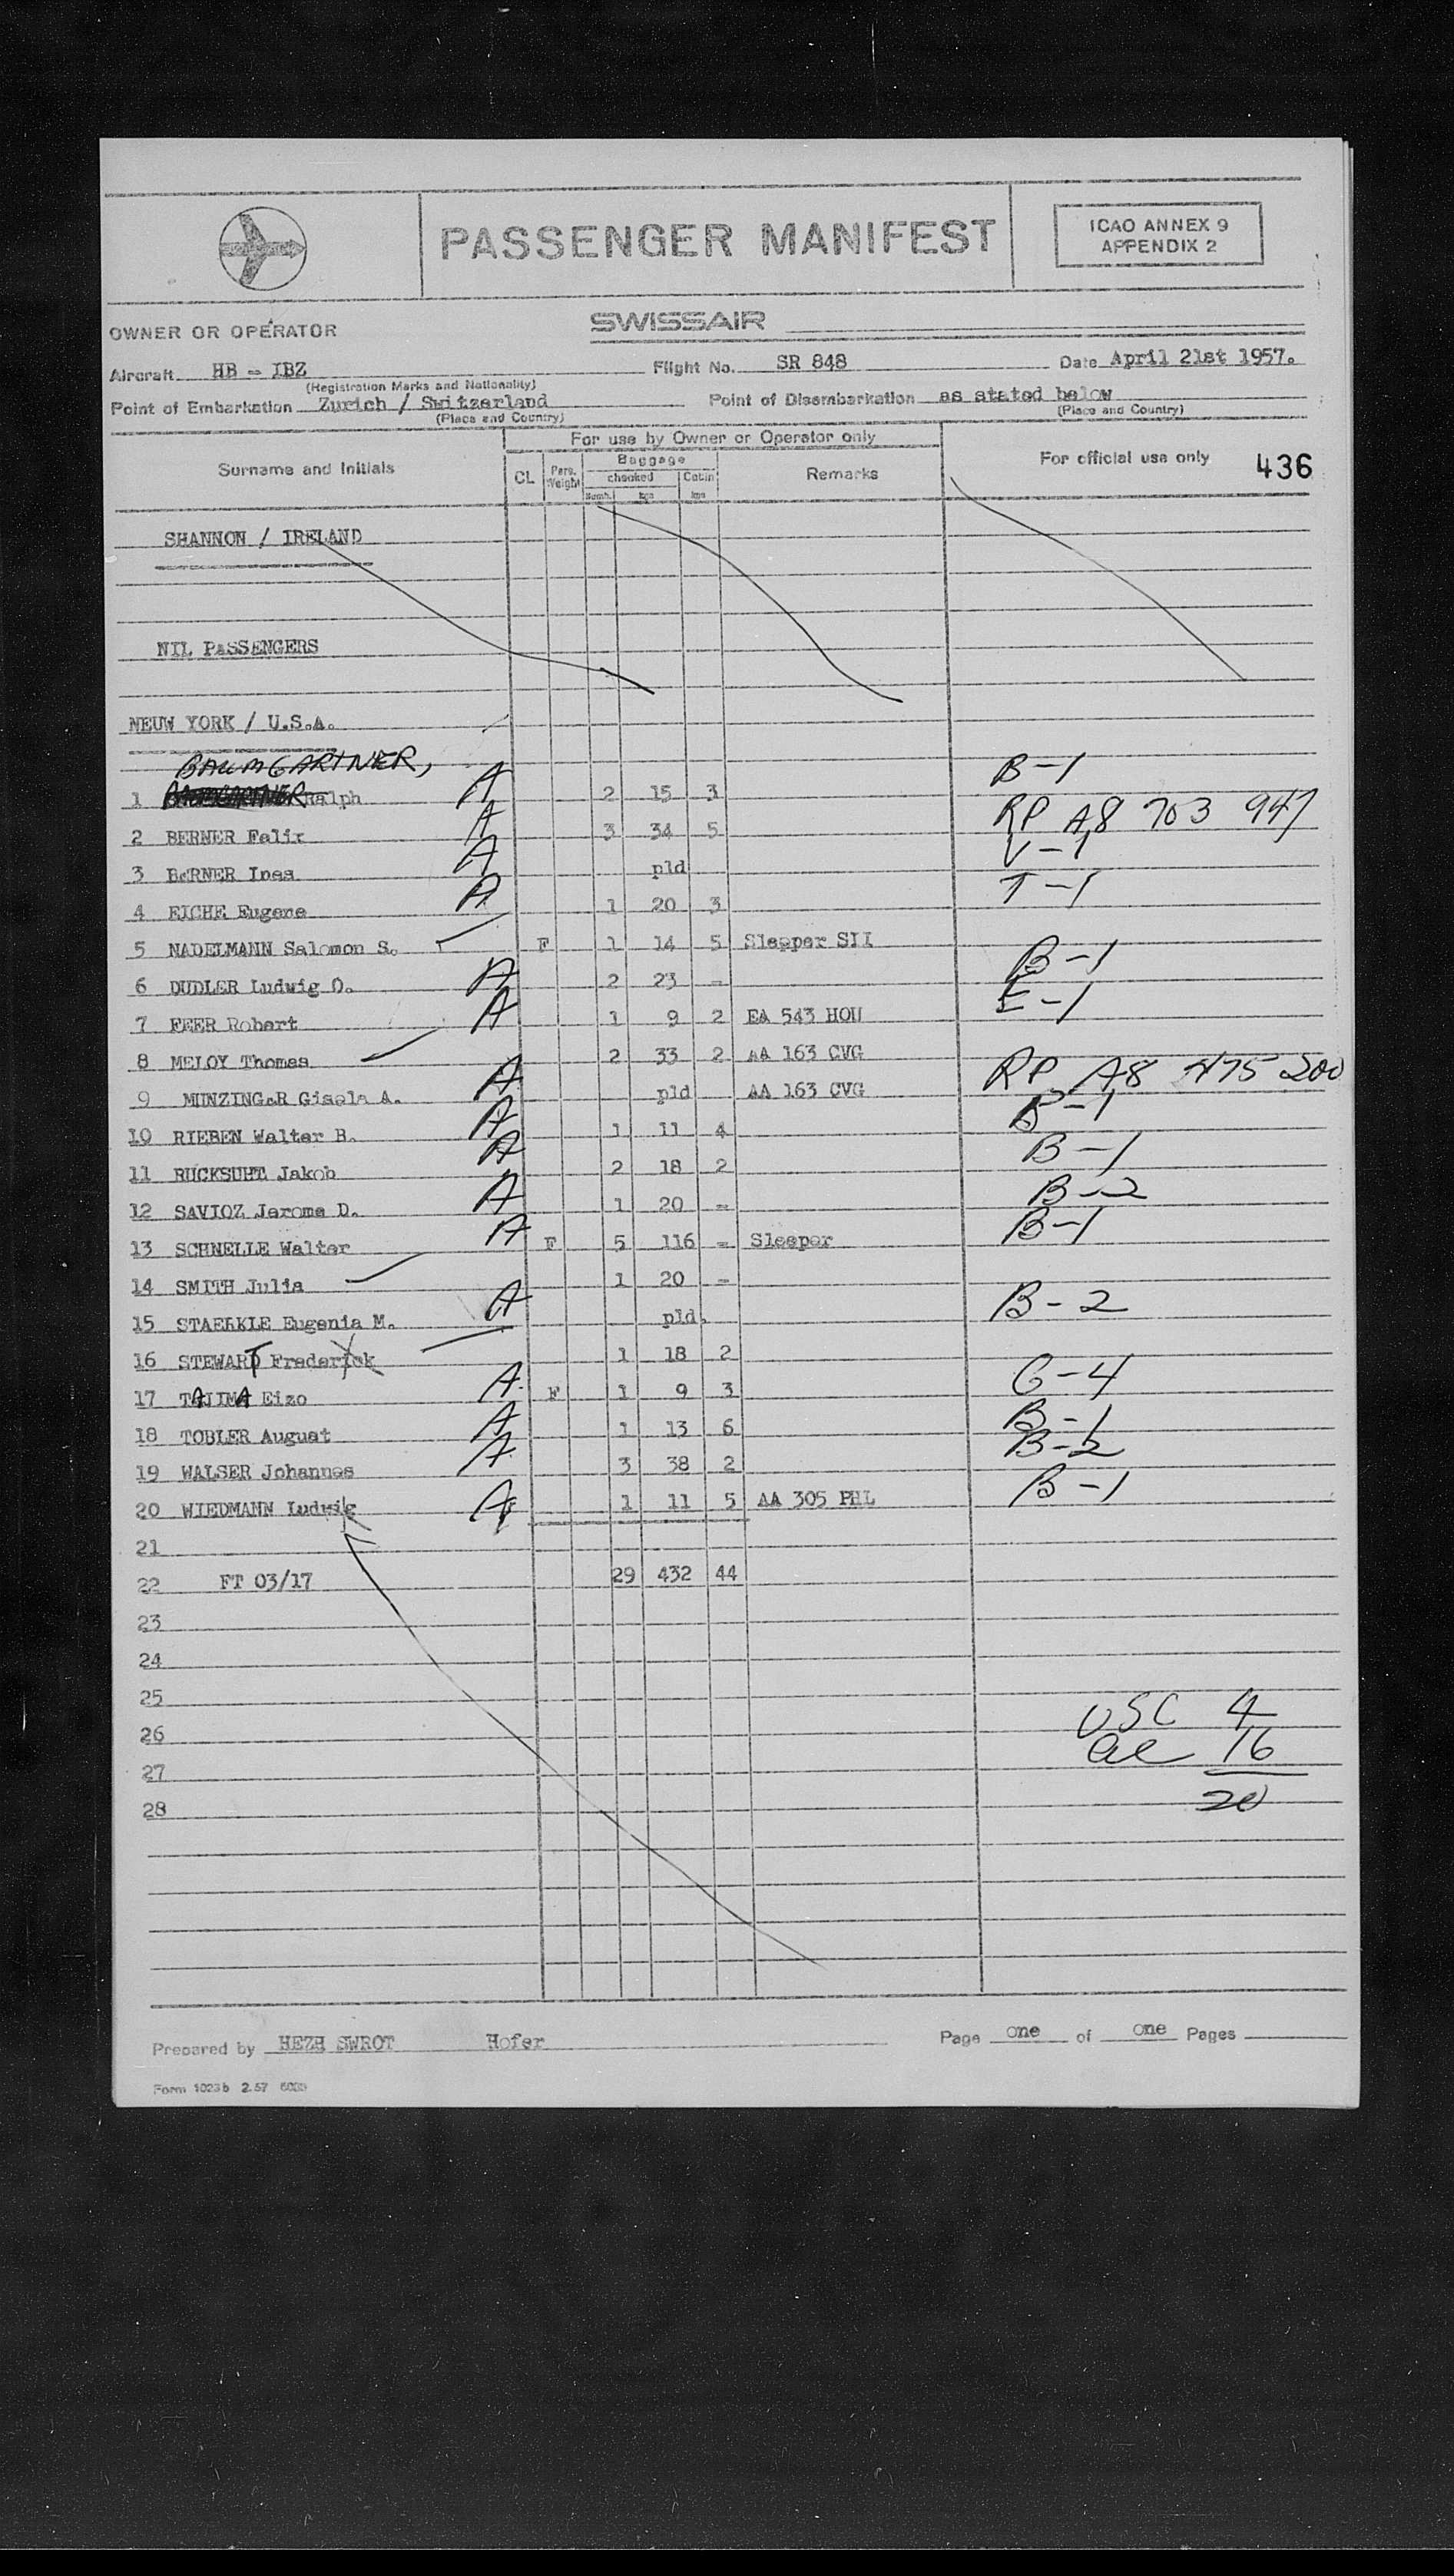 PASSENGER MANIFEST
ICAO ANNEX 9
APPENDIX 2
OWNER OR OPERATOR SWISSAIR
Aircraft HB - IBZ Flight No. SR 848 Date April 21st 1957.
(Registration Marks and Nationality)
Point of Embarkation Zurich / Switzerland Point of Disembarkation as stated below
(Place and Country) (Place and Country)
For use by Owner or Operator only
Surname and Initials CL Pers. Weight Baggage checked Numb. kgs Cabin kgs Remarks For official use only 436
SHANNON / IRELAND
NIL PASSENGERS
NEUW YORK / U.S.A.
BAUMGARTNER,
1 Ralph A 2 15 3 B-1
2 BERNER Felix A 3 34 5 RP A8 703 947
3 BERNER Ines A pld V-1
4 EICHE Eugene A 1 20 3 T-1
5 NADELMANN Salomon S. F 1 14 5 Sleeper SII
6 DUDLER Ludwig O. A 2 23 - B-1
7 FEER Robert A 1 9 2 EA 543 HOU E-1
8 MELOY Thomas 2 33 2 AA 163 CVG
9 MUNZINGER Gisela A. A pld AA 163 CVG RP A8 475 200
10 RIEBEN Walter B. A 1 11 4 B-1
11 RUCKSUHT Jakob A 2 18 2 B-1
12 SAVIOZ Jerome D. A 1 20 - B-2
13 SCHNELLE Walter A F 5 116 - Sleeper B-1
14 SMITH Julia 1 20 -
15 STAERKLE Eugenia M. A pld. B-2
16 STEWART Frederick 1 18 2
17 TAJIMA Eizo A F 1 9 3 G-4
18 TOBLER August A 1 13 6 B-1
19 WALSER Johannes A 3 38 2 B-2
20 WIEDMANN Ludwig A 1 11 5 AA 305 PHL B-1
21
22 FT 03/17 29 432 44
23
24
25
26 USC 4
27 al 16
28 20
Prepared by HEZH SWROT Hofer Page one of one Pages
Form 1023b 2.57